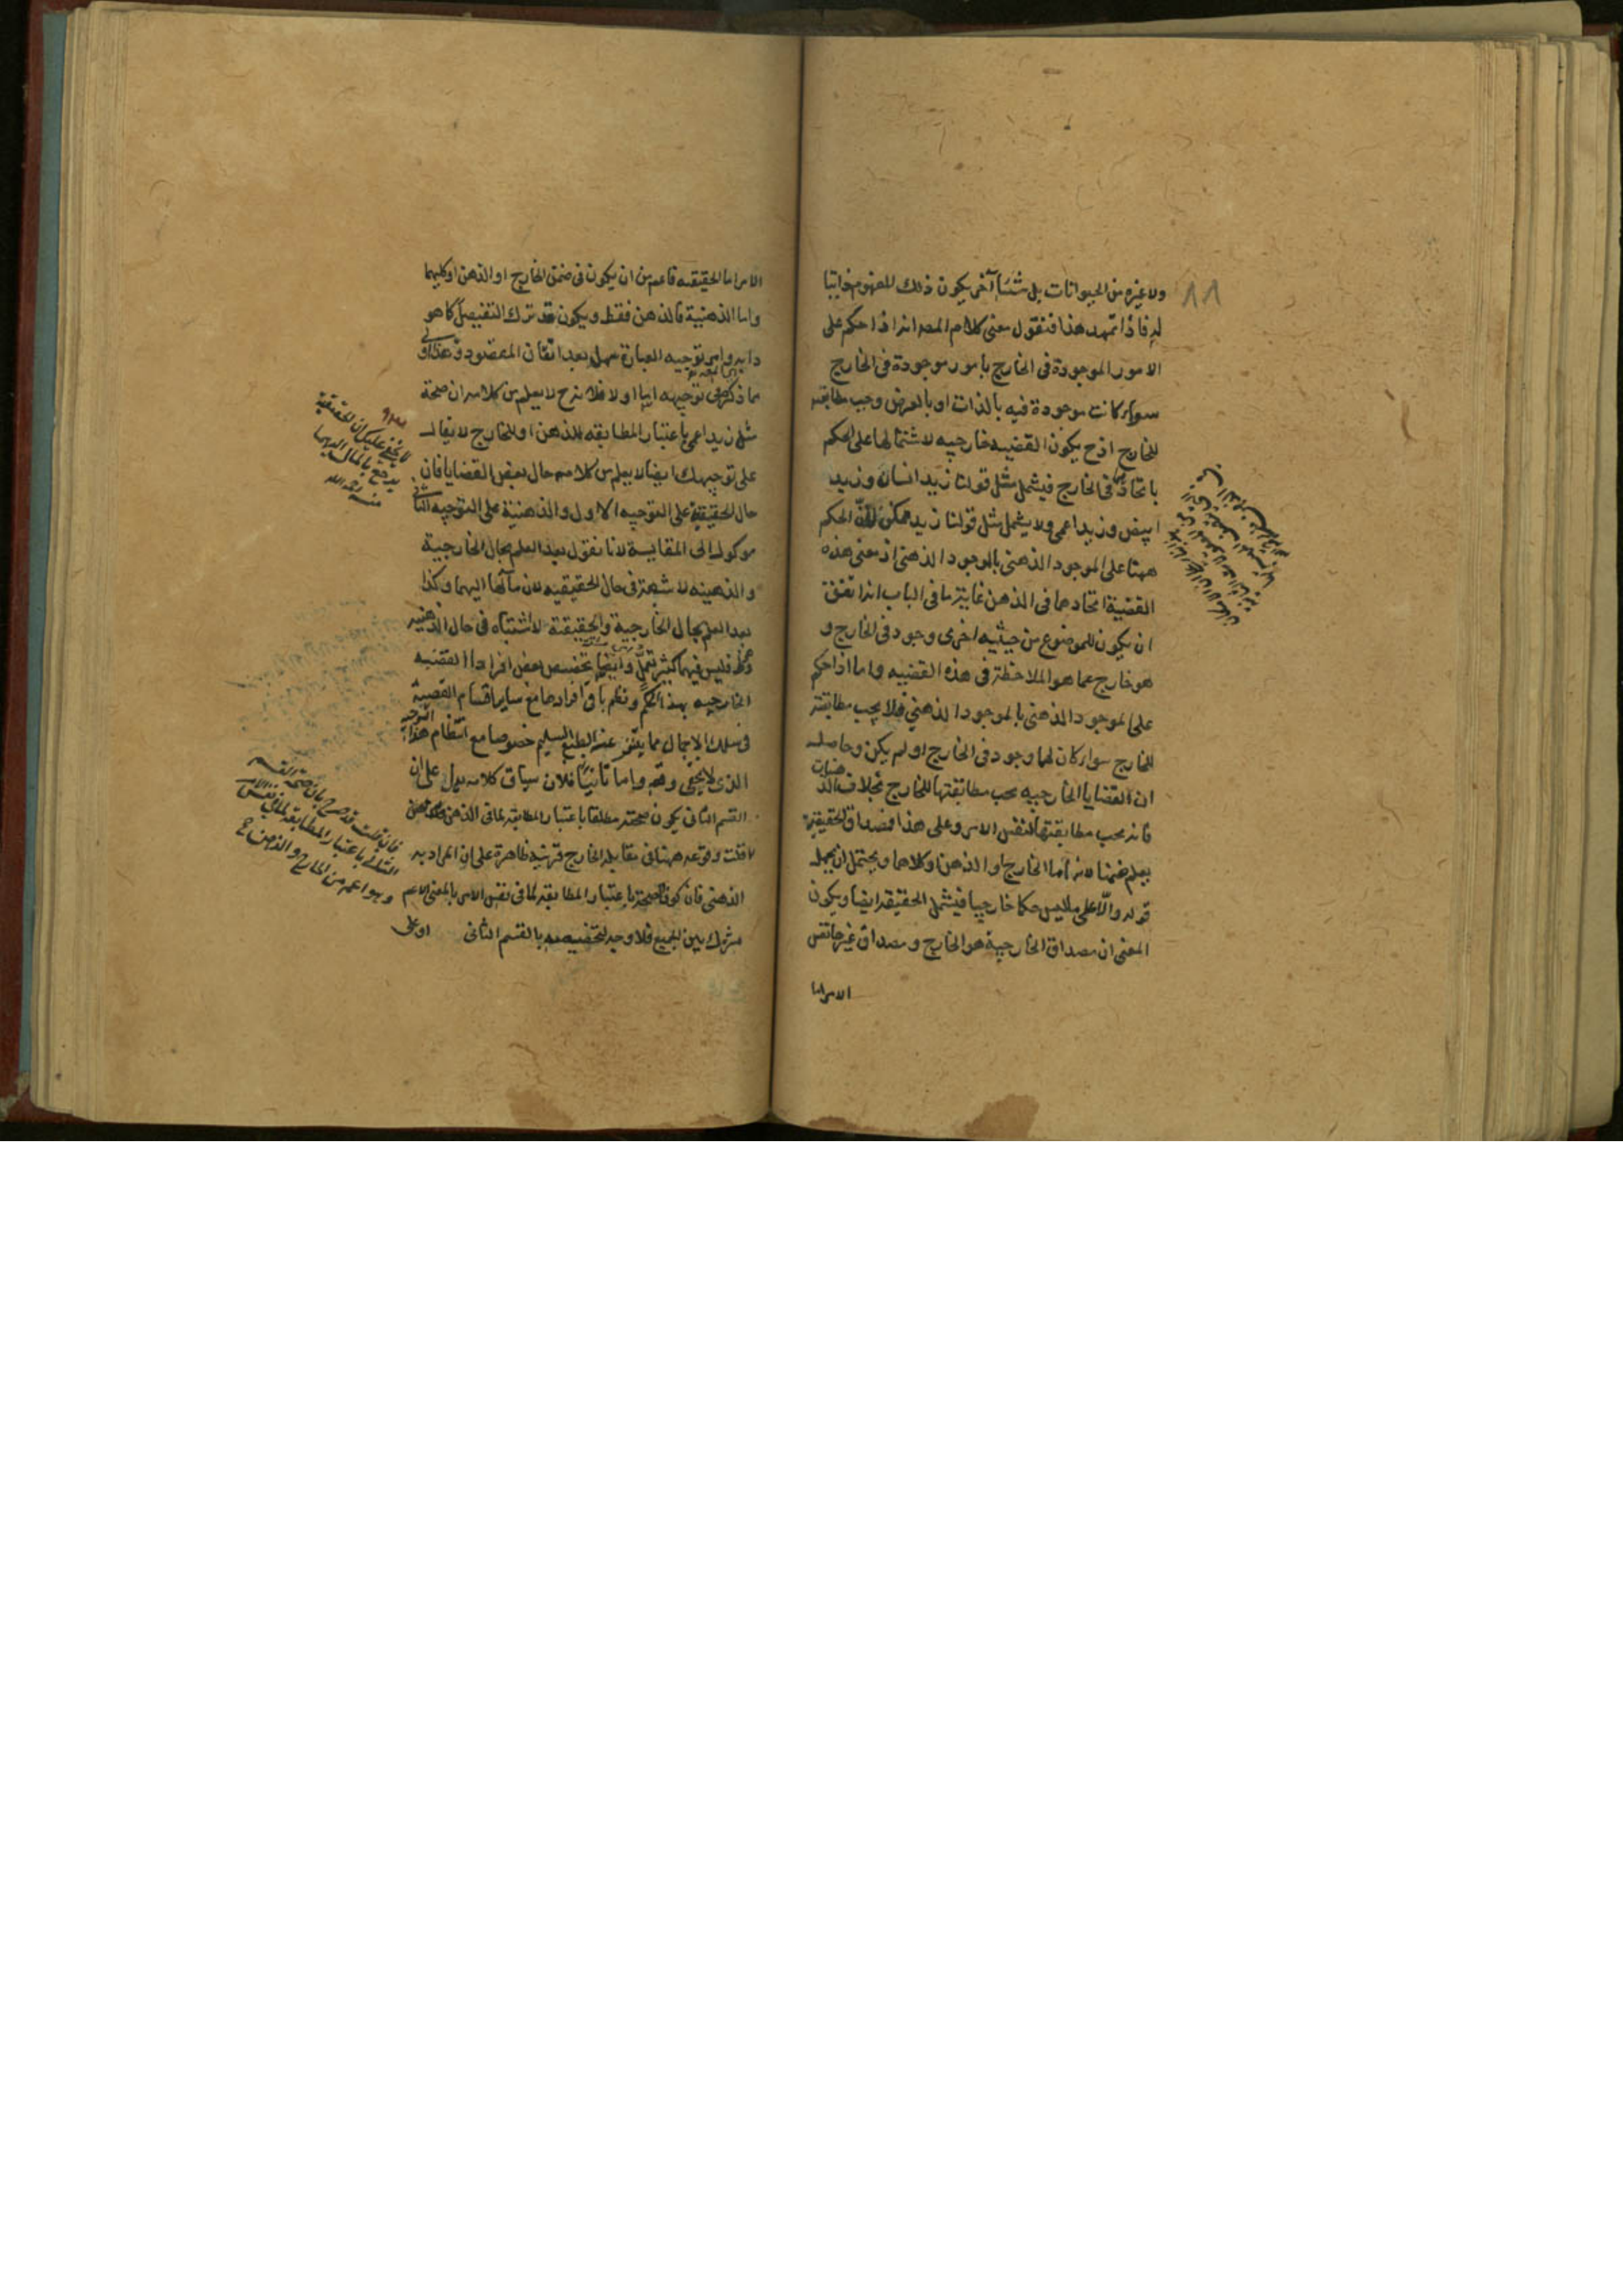 ولا غيره من الحيوانات بل شيئا آخر يكون ذلك المفهوم ذاتيا
له فاذا تمهد هذا فنقول معنى كلام المصـ انه اذا حكم على
الامور الموجودة في الخارج بامور موجودة في الخارج
سواء كانت موجودة فيه بالذات او بالعرض وجب مطابقته
للخارج اذ ح يكون القضيه خارجيه لاشتمالها على الحكم
باتحاد في الخارج فيشمل مثل قولنا زيد انسان وزيد
ابيض وزيد اعمى ولا يشمل مثل قولنا زيد ممكن لان الحكم
ههنا على الموجود الذهنى بالموجود الذهنى اذ معنى هذه
القضية اتحادهما في الذهن غاية ما في الباب انه اتفق
ان يكون للموضوع من حيثيه اخرى وجود في الخارج و
هو خارج عما هو الملاحظة في هذه القضيه واما اذا حكم
على الموجود الذهنى بالموجود الذهني فلا يجب مطابقته
للخارج سواء كان لهما وجود في الخارج او لم يكن وحاصله
ان القضايا الخارجيه يجب مطابقتها للخارج بخلاف الذهنيات
فانه يجب مطابقتها لنفس الامر وعلى هذا فصداق الحقيقية
يعلم ضمنا لانه اما الخارج او الذهن او كلاهما ويحتمل ان يحمل
قوله والا على ما ليس حكما خارجيا فيشمل الحقيقه ايضا ويكون
المعنى ان مصداق الخارجية هو الخارج ومصداق غيرها نفس
الامر اما
١١
الامر اما الحقيقيه فاعم من ان يكون في ضمن الخارج او الذهن او كليهما
واما الذهنية فالذهن فقط ويكون قد ترك التفصيل كما هو
دابه وامر توجيه العبارة سهل بعد اتقان المقصود وهذا اولى
مما ذكر في توجيهه اما اولا فلانه ح لا يعلم من كلامه ان صحة
مثل زيد اعمى باعتبار المطابقه للذهن او للخارج لا يقال
على توجيهك ايضا لا يعلم من كلامه حال بعض القضايا فان
حال الحقيقية على التوجيه الاول والذهنية على التوجيه الثاني
موكول الى المقايسة لانا نقول بعد العلم بحال الخارجية
والذهنيه لا شبهة في حال الحقيقيه لان مآلها اليهما وكذا
بعد العلم بحال الخارجية والحقيقية لا اشتباه في حال الذهنيه
فليس فيهما كثير تمحل وايضا تخصيص بعض افراد القضيه
الخارجيه بهذا الحكم ونظم باقى افرادها مع ساير اقسام القضية
في سلك الاجمال مما يتنفر عنه الطبع السليم خصوصا مع انتظام هذا التوجيه
الذى لا يخفى وقعه واما ثانيا فلان سياق كلامه يدل على ان
القسم الثاني يكون صحته مطلقا باعتبار المطابقه لما في الذهن
لا قلت وقوعه ههنا في مقابله الخارج قرينه ظاهرة على ان المراد به
الذهنى فان كون الصحة باعتبار المطابقه لما في نفس الامر بالمعنى الاعم
مشترك بين الجميع فلا وجه لتخصيصه بالقسم الثاني
او على
لا يخفى عليك ان الحقيقية
يرجع بالمآل اليهما
منه رحمه الله
فان قلت قد صرح بان صحة القسم
الثاني باعتبار المطابقه لما في نفس الامر
وهو اعم من الخارج والذهن